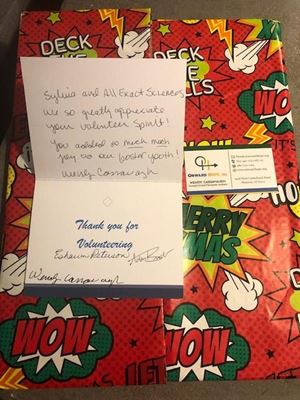 DECK
THE
HALLS
DECK
HALLS
Sylvia and All Exact Sciences
We so greatly appreciate
your Volunteer Spirit!
You added so much much
joy to our foster youth!
Wendy Cassavaugh
Thank you for
Volunteering
Wendy Cassavaugh
ONWARD HOPE, INC.
WENDY CASSAVAUGH
MERRY
XMAS
WOW
WOW
WOW